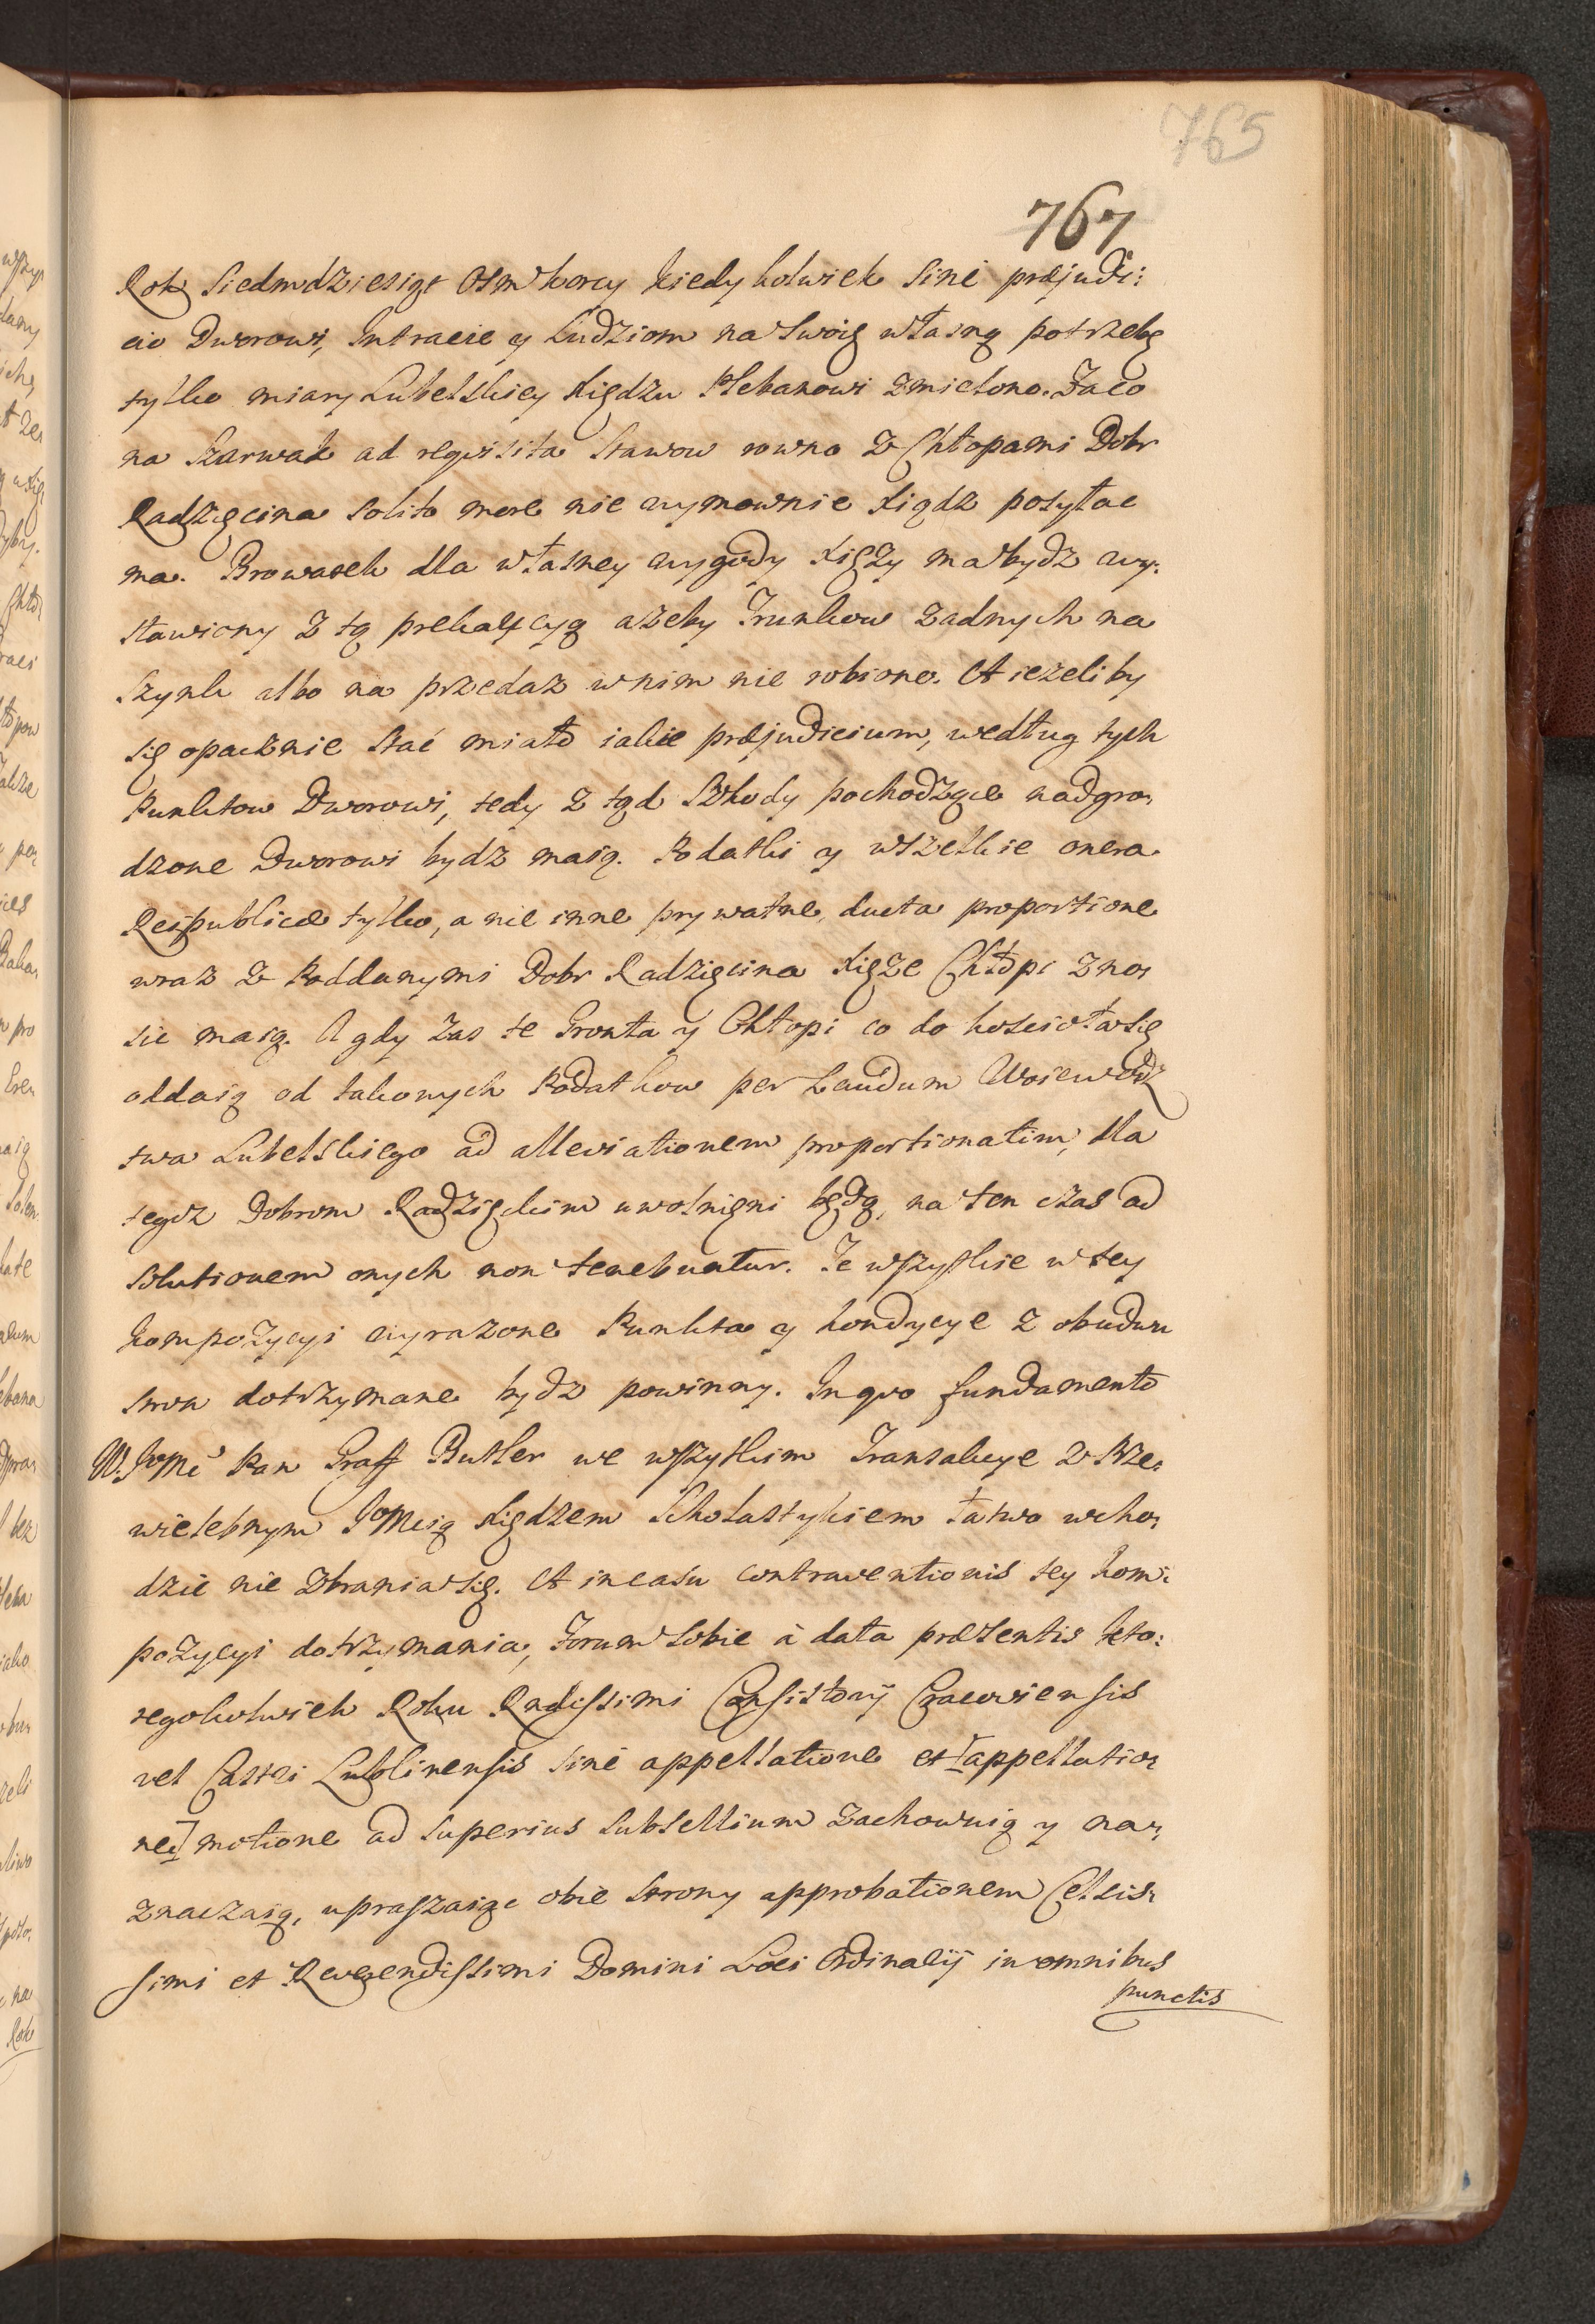 765
767
Rok Siedmdziesiąt Osm korcy kiedykolwiek sine præjudi:
cio Dworowi, Intracie y Ludziom na Swoię własną potrzebę
tylko miary Lubelskiey Xiędzu Plebanowi zmielono. Jaco
na Szarwak ad reqvisita Stawow rowno z Chłopami Dobr
Radzięcina solito more nie wymownie Xiądz posyłac
ma. Browarek dla własney wygody Xięży ma bydz wy:
stawiony z tą prekaucyą azeby Trunkow zadnych na
Szynk albo na przedaz w nim nie robiono. A iezeliby
się opacznie stać miało iakie præjudicium, według tych
Punktow Dworowi, tedy z tąd Szkody pochodzące nadgro:
dzone Dworowi bydz maią. Podatki y wszelkie onera
Reipublicæ tylko, a nie inne prywatne, ducta proportione
wraz z Poddanymi Dobr Radzięcina Xięże Chłopi zno:
sic maią. A gdy zas te Gronta y Chłopi co do koscioła się
oddaią od takowych Podatkow per Laudum Woiewodz
twa Lubelskiego ad alleviationem proportionatim, dla
tegoz Dobrom Radzięckim uwolnieni będą, na ten czas ad
solutionem onych non tenebuntur. Te wszystkie w tey
kompozycyi wyrazone Punkta y kondycye z obudwu
stron dotrzymane bydz powinny. In qvo fundamento
W. JoMć Pan Graff Butler we wszytkim Transakcye z Prze:
wielebnym JoMcią Xiędzem Scholastykiem łatwo wcho:
dzić nie zbrania się. A in casu contraventionis tey kom:
pozycyi dotrzymania, Forum sobie à data præsentis kto:
regokolwiek Roku Rndissimi Consistorij Cracoviensis
vel Castri Lublinensis sine appellatione et [appellatio:
ne] motione ad superius subsellium zachowuią y na:
znaczaią, upraszaiąc obie strony approbationem Celsis:
simi et Reverendissimi Domini Loci Ordinarij in omnibus
punctis